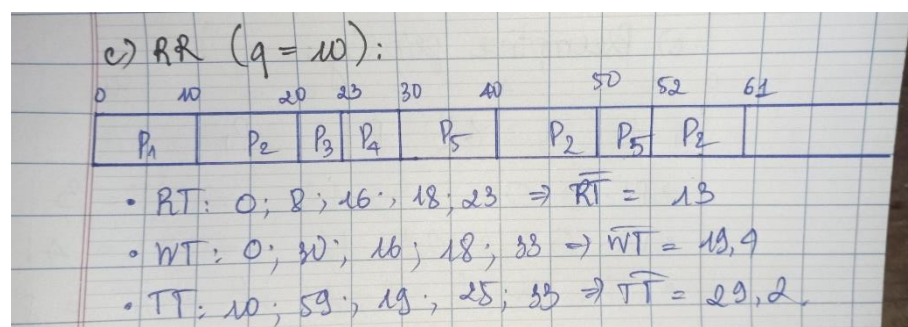 c) RR (q = 10):
0 10 20 23 30 40 50 52 61
P1 P2 P3 P4 P5 P2 P5 P2
• RT: 0; 8; 16; 18; 23 => RT = 13
• WT: 0; 30; 16; 18; 33 => WT = 19,4
• TT: 10; 59; 19; 25; 33 => TT = 29,2.